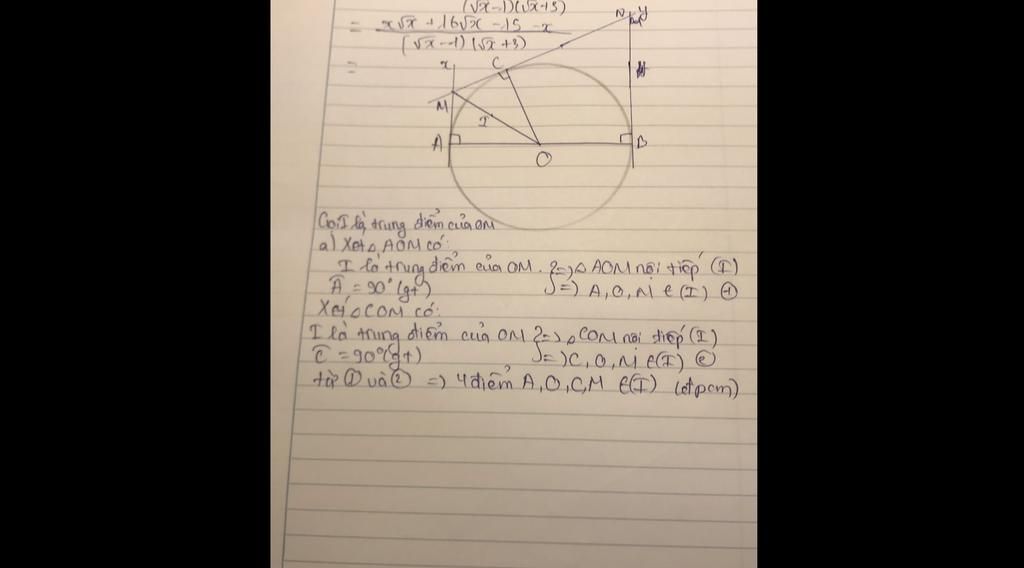 (√x-1)(√x+3)
= x√x + 16√x - 15 - x
(√x-1)(√x+3)
=
x
C
N
y
M
I
A
B
O
Gọi I là trung điểm của OM
a) Xét △ AOM có:
I là trung điểm của OM. } => △ AOM nội tiếp (I)
Â = 90° (gt) => A, O, M ∈ (I) ①
Xét △ COM có:
I là trung điểm của OM } => △ COM nội tiếp (I)
Ĉ = 90° (gt) => C, O, M ∈ (I) ②
từ ① và ② => 4 điểm A, O, C, M ∈ (I) (đpcm)